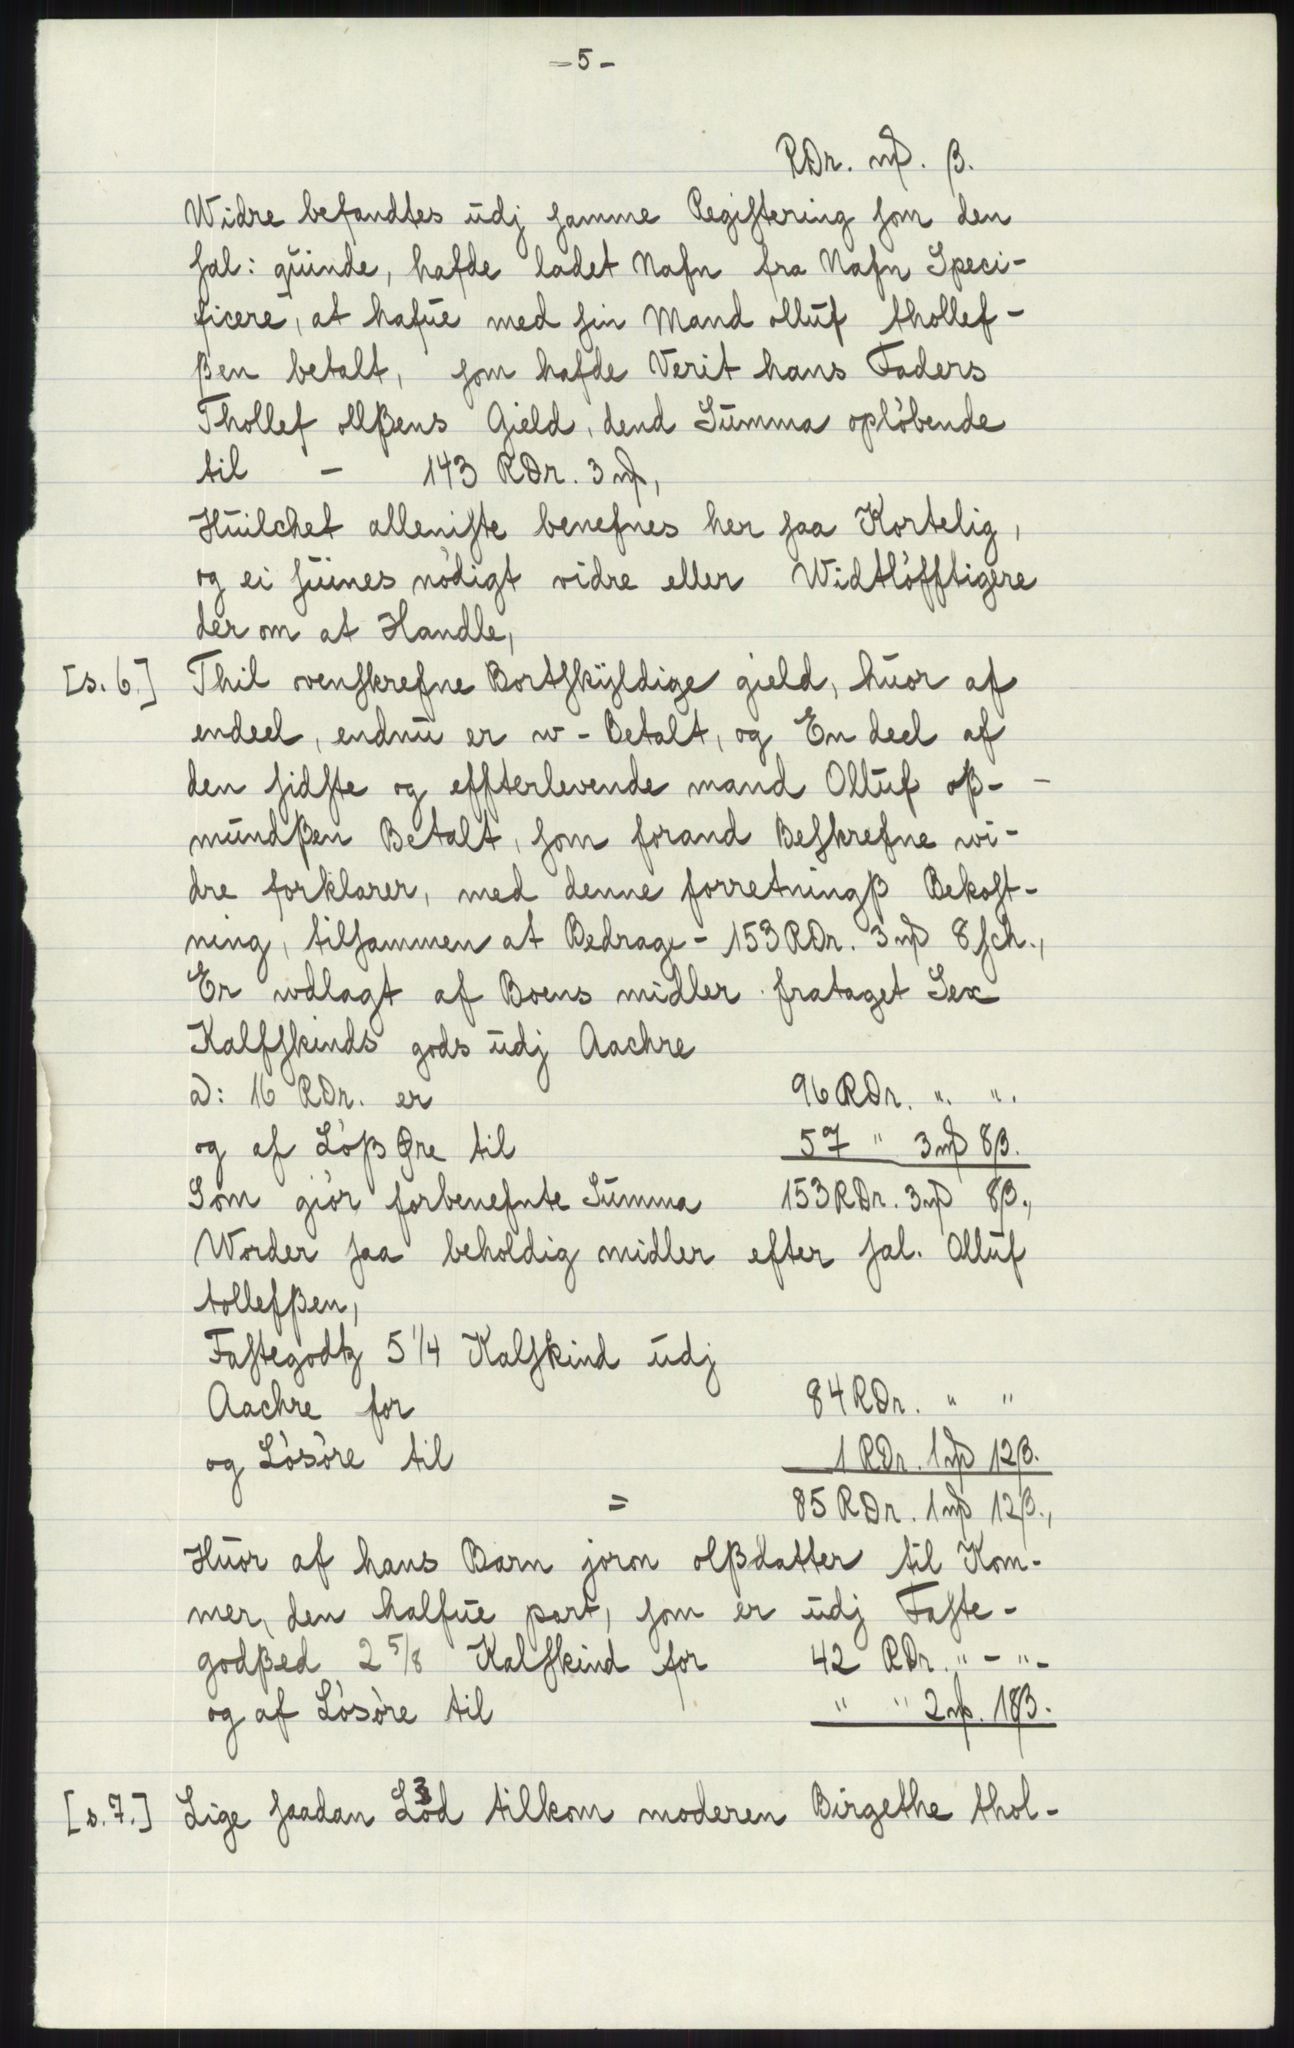 -5-
RDr. mƥ. β.
Widre befandtes üdj samme Registering som den
sal: qüinde, hafde ladet Nafn fra Nafn Speci-
ficere, at hafüe med sin Mand ollüf thollef-
βen betalt, som hafde Verit hans Faders
Thollef ollβens Gield, dend Sümma opløbende
til - 143 RDr. 3 mƥ,
Hüilchet alleniste benefnes her saa Kortelig,
og ei süines nødigt vidre eller Widtløfftigere
der om at Handle,
[s. 6.] Thil ovenskrefne Bortskÿldige gield, hüor af
endeel, endnü er w-Betalt, og En deel af
den sidste og effterlevende mand Ollüf oβ-
mündβen Betalt, som forand Beskrefne wi-
dre forklarer, med denne forretningβ Bekost-
ning, tilsammen at Bedrage - 153 RDr. 3 mƥ 8 sch.,
Er wdlagt af Boens midler frataget Sex
Kalfskinds gods üdj Aachre
a: 16 RDr. er 96 RDr. " "
og af Løβ Øre til 57 " 3 mƥ 8β.
Som giør forbenefnte Sümma 153 RDr. 3 mƥ 8β.,
Worder saa beholdig midler efter sal. Ollüf
tollefβen,
Fastegodtz 5 1/4 Kalfskind üdj
Aachre for 84 RDr. " "
og Løsøre til 1 RDr. 1 mƥ 12β.
= 85 RDr. 1 mƥ 12β.,
Hüor af hans Barn joron olβdatter til Kom-
mer, den halfüe part, som er üdj Faste-
godβed 2 5/8 Kalfskind for 42 RDr. " - " -
og af Løsøre til " " 2 mƥ. 18β.
[s. 7.] Lige saadan Lod tilkom moderen Birgethe thol-